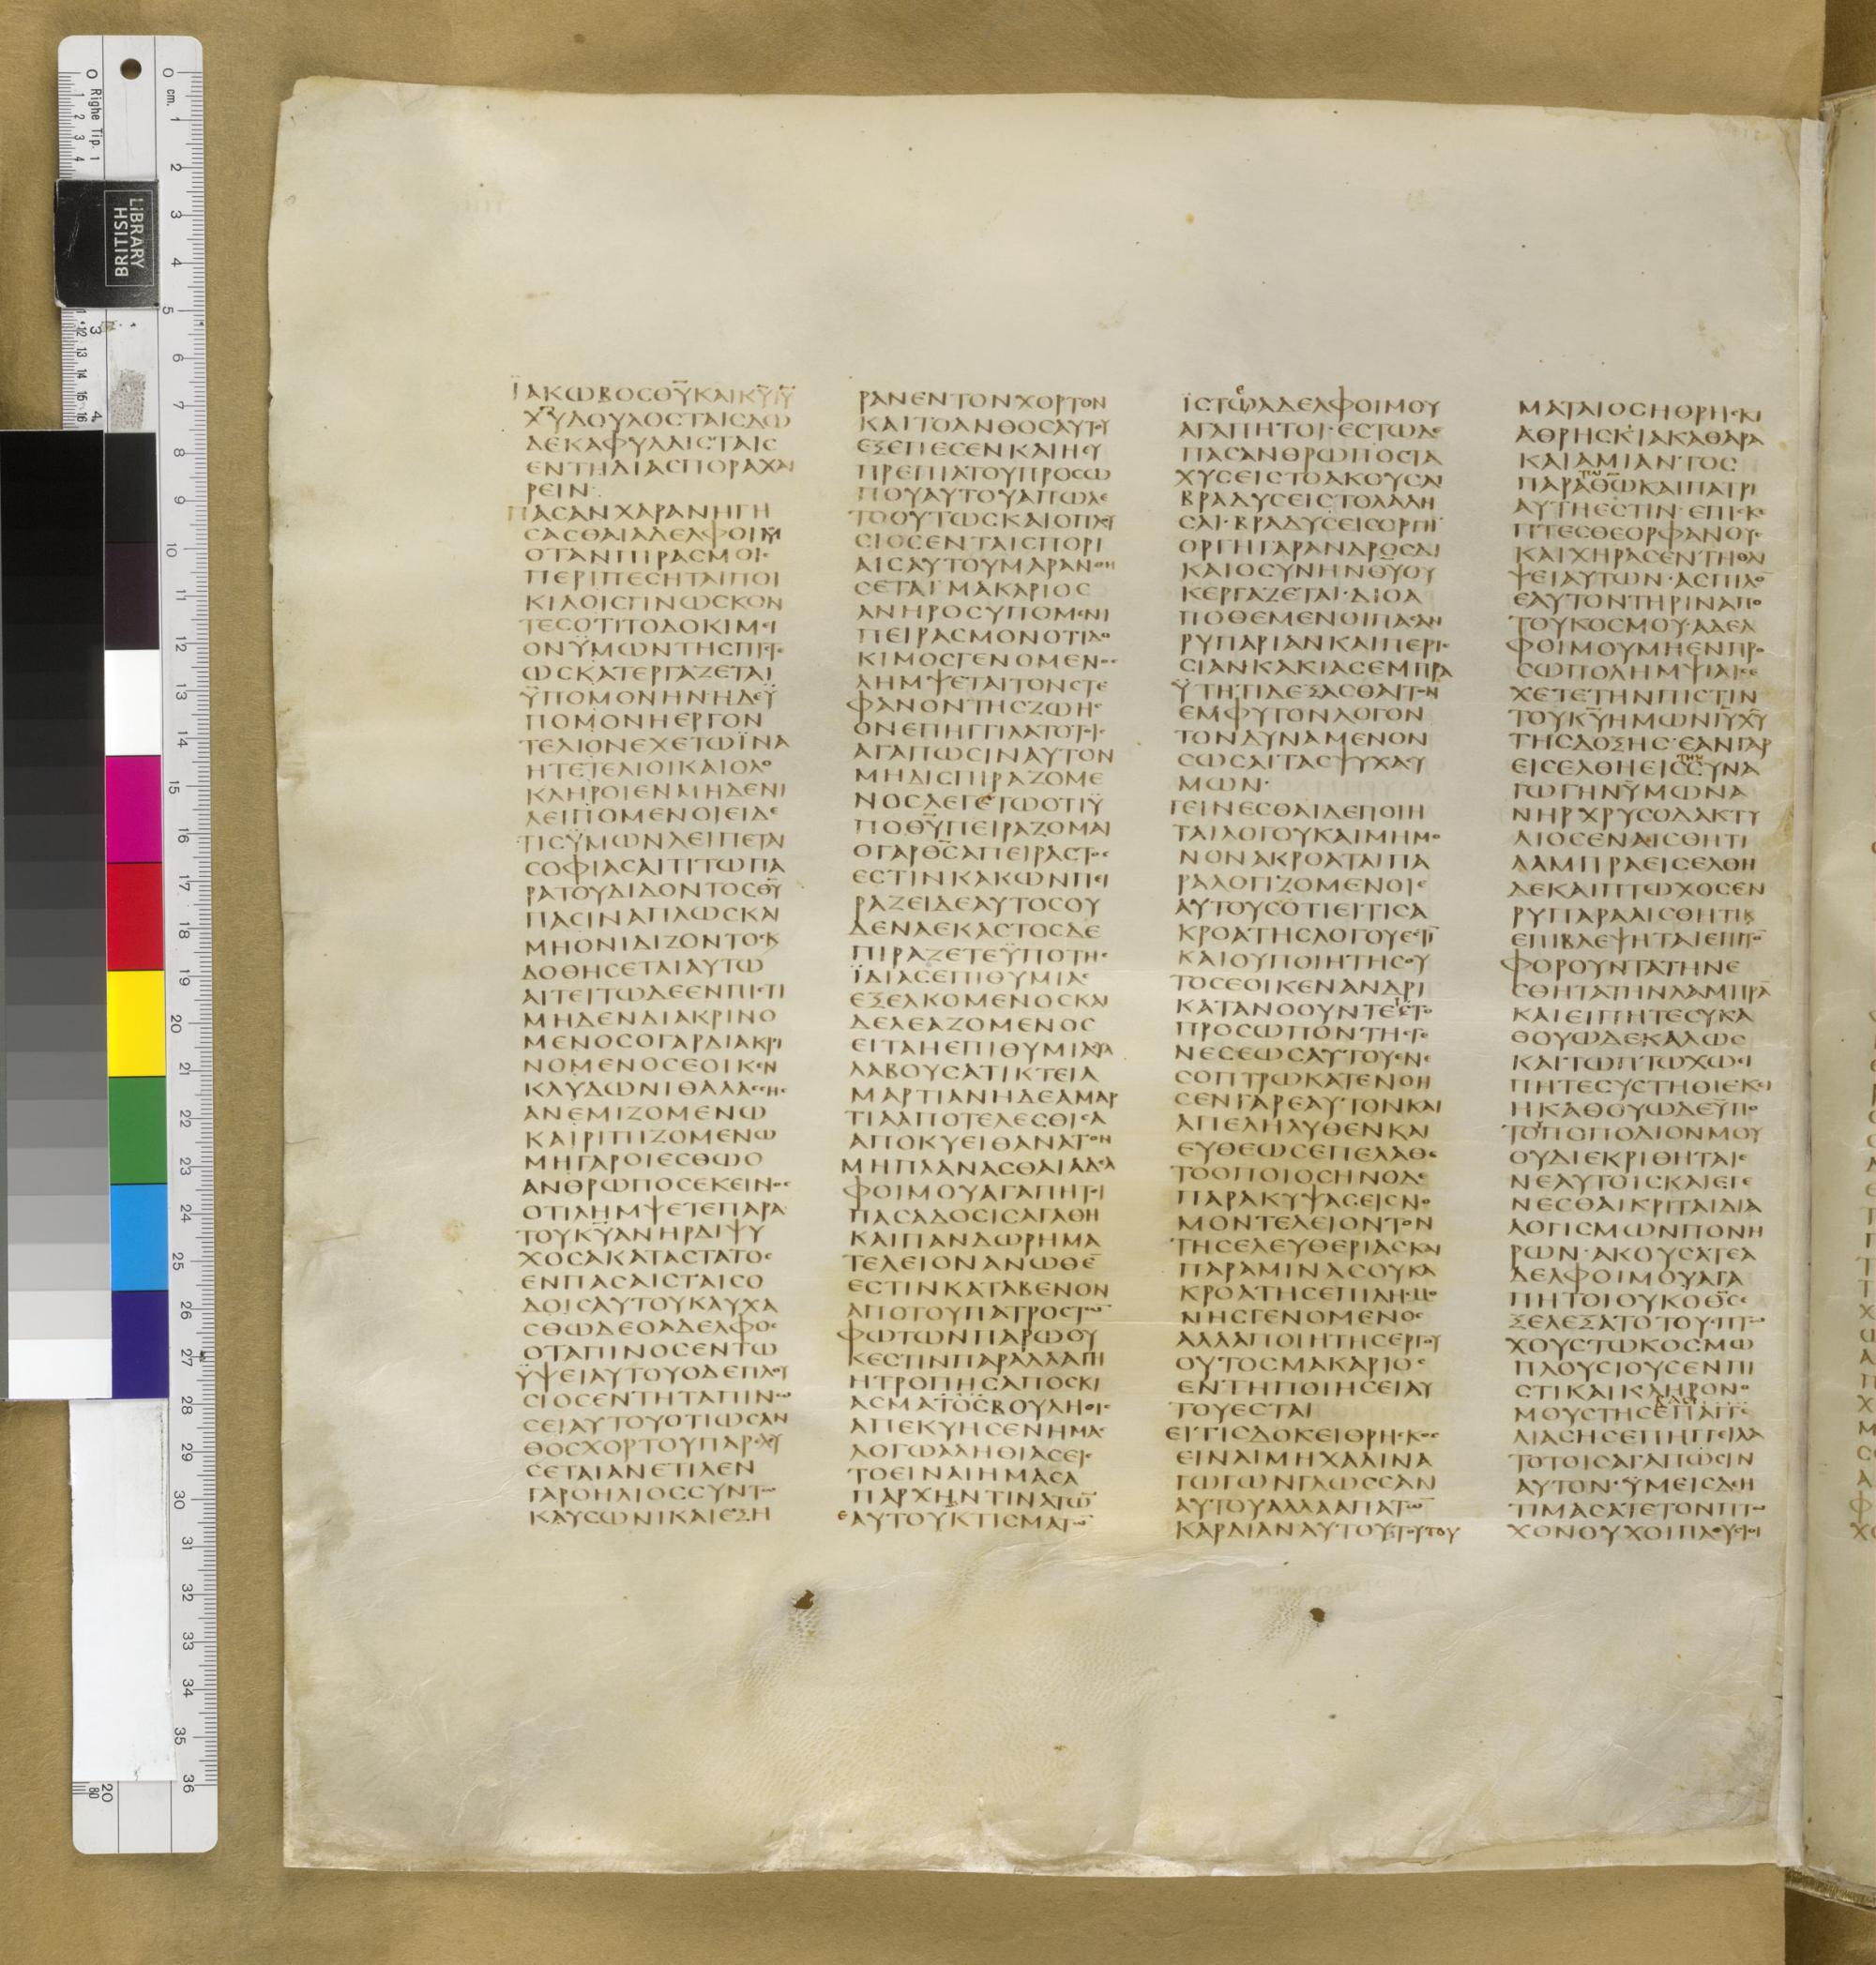 ΪΑΚΩΒΟCΘΥΚΑΙΚΥΙΥ
ΧΥΔΟΥΛΟCΤΑΙCΔΩ
ΔΕΚΑΦΥΛΑΙCΤΑΙC
ΕΝΤΗΔΙΑCΠΟΡΑΧΑΙ
ΡΕΙΝ
ΠΑCΑΝΧΑΡΑΝΗΓΗ
CΑCΘΑΙΑΔΕΛΦΟΙΜΟΥ
ΟΤΑΝΠΙΡΑCΜΟΙC
ΠΕΡΙΠΕCΗΤΑΙΠΟΙ
ΚΙΛΟΙCΓΙΝΩCΚΟΝ
ΤΕCΟΤΙΤΟΔΟΚΙΜΕΙ
ΟΝΫΜΩΝΤΗCΠΙCΤΕ
ΩCΚΑΤΕΡΓΑΖΕΤΑΙ
ΫΠΟΜΟΝΗΝΗΔΕΫ
ΠΟΜΟΝΗΕΡΓΟΝ
ΤΕΛΙΟΝΕΧΕΤΩΪΝΑ
ΗΤΕΤΕΛΙΟΙΚΑΙΟΛΟ
ΚΛΗΡΟΙΕΝΜΗΔΕΝΙ
ΛΕΙΠΟΜΕΝΟΙΕΙΔΕ
ΤΙCΫΜΩΝΛΕΙΠΕΤΑΙ
CΟΦΙΑCΑΙΤΙΤΩΠΑ
ΡΑΤΟΥΔΙΔΟΝΤΟCΘΥ
ΠΑCΙΝΑΠΛΩCΚΑΙ
ΜΗΟΝΙΔΙΖΟΝΤΟCΚ
ΔΟΘΗCΕΤΑΙΑΥΤΩ
ΑΙΤΕΙΤΩΔΕΕΝΠΙCΤΙ
ΜΗΔΕΝΔΙΑΚΡΙΝΟ
ΜΕΝΟCΟΓΑΡΔΙΑΚΡΙ
ΝΟΜΕΝΟCΕΟΙΚΕΝ
ΚΛΥΔΩΝΙΘΑΛΑCCΗC
ΑΝΕΜΙΖΟΜΕΝΩ
ΚΑΙΡΙΠΙΖΟΜΕΝΩ
ΜΗΓΑΡΟΙΕCΘΩΟ
ΑΝΘΡΩΠΟCΕΚΕΙΝΟC
ΟΤΙΛΗΜΨΕΤΕΠΑΡΑ
ΤΟΥΚΥΑΝΗΡΔΙΨΥ
ΧΟCΑΚΑΤΑCΤΑΤΟC
ΕΝΠΑCΑΙCΤΑΙCΟ
ΔΟΙCΑΥΤΟΥΚΑΥΧΑ
CΘΩΔΕΟΑΔΕΛΦΟC
ΟΤΑΠΙΝΟCΕΝΤΩ
ΫΨΕΙΑΥΤΟΥΟΔΕΠΛΟΥ
CΙΟCΕΝΤΗΤΑΠΙΝΩ
CΕΙΑΥΤΟΥΟΤΙΩCΑΝ
ΘΟCΧΟΡΤΟΥΠΑΡΕΛΕΥ
CΕΤΑΙΑΝΕΤΙΛΕΝ
ΓΑΡΟΗΛΙΟCCΥΝΤΩ
ΚΑΥCΩΝΙΚΑΙΕΞΗ
ΡΑΝΕΝΤΟΝΧΟΡΤΟΝ
ΚΑΙΤΟΑΝΘΟCΑΥΤΟΥ
ΕΞΕΠΕCΕΝΚΑΙΗΕΥ
ΠΡΕΠΙΑΤΟΥΠΡΟCΩ
ΠΟΥΑΥΤΟΥΑΠΩΛΕ
ΤΟΟΥΤΩCΚΑΙΟΠΛΟΥ
CΙΟCΕΝΤΑΙCΠΟΡΙ
ΑΙCΑΥΤΟΥΜΑΡΑΝΘΗ
CΕΤΑΙΜΑΚΑΡΙΟC
ΑΝΗΡΟCΥΠΟΜΕΝΙ
ΠΕΙΡΑCΜΟΝΟΤΙΔΟ
ΚΙΜΟCΓΕΝΟΜΕΝΟC
ΛΗΜΨΕΤΑΙΤΟΝCΤΕ
ΦΑΝΟΝΤΗCΖΩΗC
ΟΝΕΠΗΓΓΙΛΑΤΟΤΟΙC
ΑΓΑΠΩCΙΝΑΥΤΟΝ
ΜΗΔΙCΠΙΡΑΖΟΜΕ
ΝΟCΛΕΓΕΤΩΟΤΙΫ
ΠΟΘΥΠΕΙΡΑΖΟΜΑΙ
ΟΓΑΡΘCΑΠΕΙΡΑCΤΟC
ΕCΤΙΝΚΑΚΩΝΠΕΙ
ΡΑΖΕΙΔΕΑΥΤΟCΟΥ
ΔΕΝΑΕΚΑCΤΟCΔΕ
ΠΙΡΑΖΕΤΕΫΠΟΤΗC
ΪΔΙΑCΕΠΙΘΥΜΙΑC
ΕΞΕΛΚΟΜΕΝΟCΚΑΙ
ΔΕΛΕΑΖΟΜΕΝΟC
ΕΙΤΑΗΕΠΙΘΥΜΙΑCΥΛ
ΛΑΒΟΥCΑΤΙΚΤΕΙΑ
ΜΑΡΤΙΑΝΗΔΕΑΜΑΡ
ΤΙΑΑΠΟΤΕΛΕCΘΙCΑ
ΑΠΟΚΥΕΙΘΑΝΑΤΟΝ
ΜΗΠΛΑΝΑCΘΑΙΑΔΕΛ
ΦΟΙΜΟΥΑΓΑΠΗΤΟΙ
ΠΑCΑΔΟCΙCΑΓΑΘΗ
ΚΑΙΠΑΝΔΩΡΗΜΑ
ΤΕΛΕΙΟΝΑΝΩΘΕ
ΕCΤΙΝΚΑΤΑΒΕΝΟΝ
ΑΠΟΤΟΥΠΑΤΡΟCΤΩ
ΦΩΤΩΝΠΑΡΩΟΥ
ΚΕCΤΙΝΠΑΡΑΛΛΑΓΗ
ΗΤΡΟΠΗCΑΠΟCΚΙ
ΑCΜΑΤΟCΒΟΥΛΗΘΙC
ΑΠΕΚΥΗCΕΝΗΜΑC
ΛΟΓΩΑΛΗΘΙΑCΕΙC
ΤΟΕΙΝΑΙΗΜΑCΑ
ΠΑΡΧΗΝΤΙΝΑΤΩ
ΕΑΥΤΟΥΚΤΙCΜΑΤΩ
ΪCΤΩΑΔΕΛΦΟΙΜΟΥ
ΑΓΑΠΗΤΟΙ·ΕCΤΩΔΕ
ΠΑCΑΝΘΡΩΠΟCΤΑ
ΧΥCΕΙCΤΟΑΚΟΥCΑΙ
ΒΡΑΔΥCΕΙCΤΟΛΑΛΗ
CΑΙ·ΒΡΑΔΥCΕΙCΟΡΓΗ
ΟΡΓΗΓΑΡΑΝΔΡΟCΔΙ
ΚΑΙΟCΥΝΗΝΘΥΟΥ
ΚΕΡΓΑΖΕΤΑΙ·ΔΙΟΑ
ΠΟΘΕΜΕΝΟΙΠΑCΑΝ
ΡΥΠΑΡΙΑΝΚΑΙΠΕΡΙC
CΙΑΝΚΑΚΙΑCΕΜΠΡΑ
ΫΤΗΤΙΔΕΞΑCΘΑΙΤΟΝ
ΕΜΦΥΤΟΝΛΟΓΟΝ
ΤΟΝΔΥΝΑΜΕΝΟΝ
CΩCΑΙΤΑCΨΥΧΑCΥ
ΜΩΝ·
ΓΕΙΝΕCΘΑΙΔΕΠΟΙΗ
ΤΑΙΛΟΓΟΥΚΑΙΜΗΜΟ
ΝΟΝΑΚΡΟΑΤΑΙΠΑ
ΡΑΛΟΓΙΖΟΜΕΝΟΙΕ
ΑΥΤΟΥCΟΤΙΕΙΤΙCΑ
ΚΡΟΑΤΗCΛΟΓΟΥΕCΤΙ
ΚΑΙΟΥΠΟΙΗΤΗCΟΥ
ΤΟCΕΟΙΚΕΝΑΝΔΡΙ
ΚΑΤΑΝΟΟΥΝΤΕΙΤΟ
ΠΡΟCΩΠΟΝΤΗCΓΕ
ΝΕCΕΩCΑΥΤΟΥΕΝΕ
CΟΠΤΡΩΚΑΤΕΝΟΗ
CΕΝΓΑΡΕΑΥΤΟΝΚΑΙ
ΑΠΕΛΗΛΥΘΕΝΚΑΙ
ΕΥΘΕΩCΕΠΕΛΑΘΕ
ΤΟΟΠΟΙΟCΗΝΟΔΕ
ΠΑΡΑΚΥΨΑCΕΙCΝΟ
ΜΟΝΤΕΛΕΙΟΝΤΟΝ
ΤΗCΕΛΕΥΘΕΡΙΑCΚΑΙ
ΠΑΡΑΜΙΝΑCΟΥΚΑ
ΚΡΟΑΤΗCΕΠΙΛΗCΜΟ
ΝΗCΓΕΝΟΜΕΝΟC
ΑΛΛΑΠΟΙΗΤΗCΕΡΓΟΥ
ΟΥΤΟCΜΑΚΑΡΙΟC
ΕΝΤΗΠΟΙΗCΕΙΑΥ
ΤΟΥΕCΤΑΙ
ΕΙΤΙCΔΟΚΕΙΘΡΗCΚΟC
ΕΙΝΑΙΜΗΧΑΛΙΝΑ
ΓΩΓΩΝΓΛΩCCΑΝ
ΑΥΤΟΥΑΛΛΑΑΠΑΤΩ
ΚΑΡΔΙΑΝΑΥΤΟΥΤΟΥΤΟΥ
ΜΑΤΑΙΟCΗΘΡΗCΚΙ
ΑΘΡΗCΚΙΑΚΑΘΑΡΑ
ΚΑΙΑΜΙΑΝΤΟC
ΠΑΡΑΘΩΚΑΙΠΑΤΡΙ
ΑΥΤΗΕCΤΙΝ·ΕΠΙCΚΕ
ΠΤΕCΘΕΟΡΦΑΝΟΥC
ΚΑΙΧΗΡΑCΕΝΤΗΘΛΙ
ΨΕΙΑΥΤΩΝ·ΑCΠΙΛΟ
ΕΑΥΤΟΝΤΗΡΙΝΑΠΟ
ΤΟΥΚΟCΜΟΥ·ΑΔΕΛ
ΦΟΙΜΟΥΜΗΕΝΠΡΟ
CΩΠΟΛΗΜΨΙΑΙCΕ
ΧΕΤΕΤΗΝΠΙCΤΙΝ
ΤΟΥΚΥΗΜΩΝΙΥΧΥ
ΤΗCΔΟΞΗC·ΕΑΝΓΑΡ
ΕΙCΕΛΘΗΕΙCCΥΝΑ
ΓΩΓΗΝΥΜΩΝΑ
ΝΗΡΧΡΥCΟΔΑΚΤΥ
ΛΙΟCΕΝΑΙCΘΗΤΙ
ΛΑΜΠΡΑΕΙCΕΛΘΗ
ΔΕΚΑΙΠΤΩΧΟCΕΝ
ΡΥΠΑΡΑΑΙCΘΗΤΙΚ
ΕΠΙΒΛΕΨΗΤΑΙΕΠΙΤΟ
ΦΟΡΟΥΝΤΑΤΗΝΕ
CΘΗΤΑΤΗΝΛΑΜΠΡΑ
ΚΑΙΕΙΠΗΤΕCΥΚΑ
ΘΟΥΩΔΕΚΑΛΩC
ΚΑΙΤΩΠΤΩΧΩΕΙ
ΠΗΤΕCΥCΤΗΘΙΕΚΕΙ
ΗΚΑΘΟΥΩΔΕΫΠΟ
ΤΟΠΟΠΟΔΙΟΝΜΟΥ
ΟΥΔΙΕΚΡΙΘΗΤΑΙΕ
ΝΕΑΥΤΟΙCΚΑΙΕΓΕ
ΝΕCΘΑΙΚΡΙΤΑΙΔΙΑ
ΛΟΓΙCΜΩΝΠΟΝΗ
ΡΩΝ·ΑΚΟΥCΑΤΕΑ
ΔΕΛΦΟΙΜΟΥΑΓΑ
ΠΗΤΟΙΟΥΚΟΘCΕ
ΞΕΛΕΞΑΤΟΤΟΥCΠΤΩ
ΧΟΥCΤΩΚΟCΜΩ
ΠΛΟΥCΙΟΥCΕΝΠΙ
CΤΙΚΑΙΚΛΗΡΟΝΟ
ΜΟΥCΤΗCΕΠΑΓΓΕ
ΛΙΑCΗCΕΠΗΓΓΕΙΛΑ
ΤΟΤΟΙCΑΓΑΠΩCΙΝ
ΑΥΤΟΝ·ΫΜΕΙCΔΕΗ
ΤΙΜΑCΑΤΕΤΟΝΠΤΩ
ΧΟΝΟΥΧΟΙΠΛΟΥCΙΟΙ
BRITISH
LIBRARY